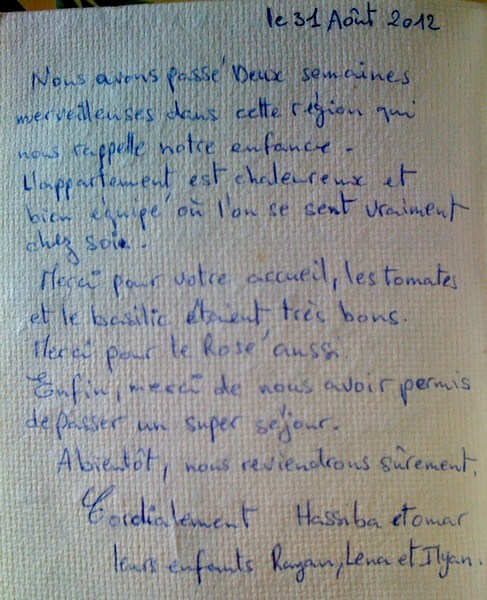 le 31 Août 2012
Nous avons passé Deux semaines
merveilleuses dans cette région qui
nous rappelle notre enfance.
L'appartement est chaleureux et
bien équipé où l'on se sent vraiment
chez soi.
Merci pour votre accueil, les tomates
et le basilic étaient très bons.
Merci pour le Rosé aussi.
Enfin, merci de nous avoir permis
de passer un super séjour.
Abientôt, nous reviendrons sûrement.
Cordialement Hassiba et omar
leurs enfants Rayan, Lena et Ilyan.